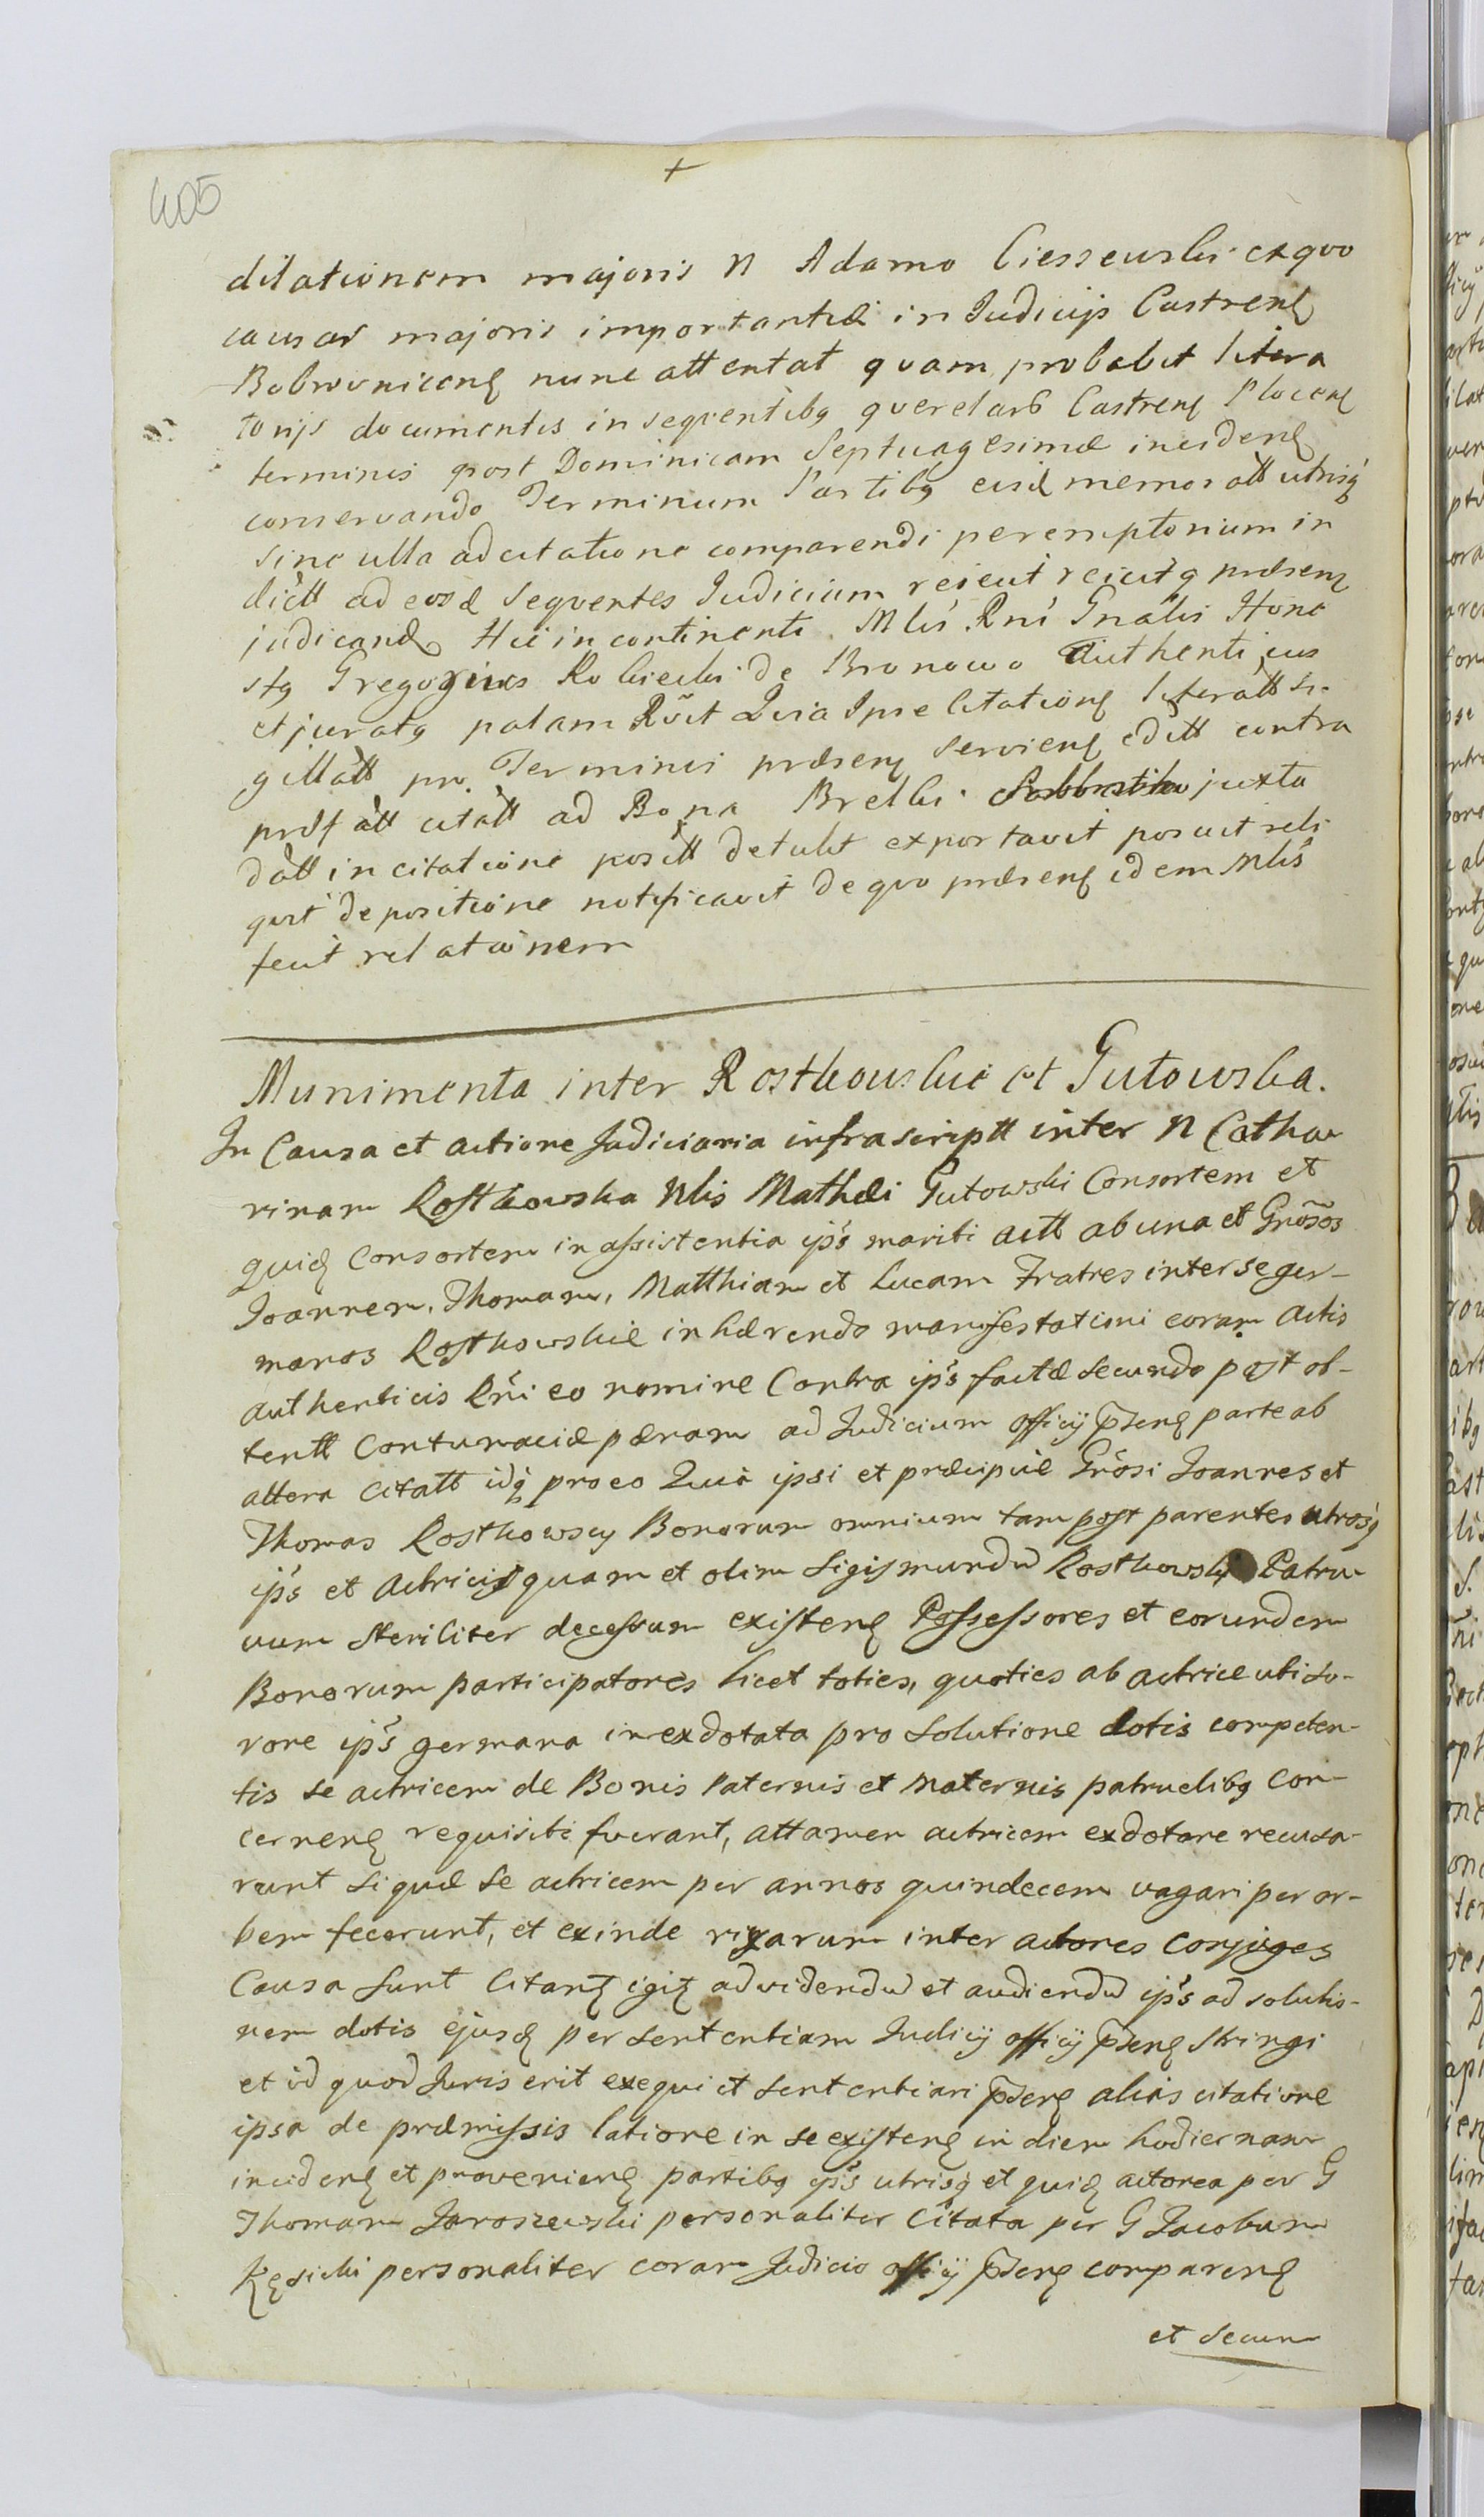 405
+
dilationem majoris N Adamo Ciessewski exquo
causas majoris importantiæ in Judicijs Castrenȩ
Bobrovnicenȩ nunc attentat quam probabit litera
torijs documentis in seqventibq querelarб Castrenȩ Plocenȩ
terminis post Dominicam Septuagesimæ incidenȩ
conservando Terminum Partibq eisd memoratt utrisq
sine ulla adcitatione comparendi peremptorium in
dictt ad eosd Seqventes Judicium reiecit reicitq præsenȩ
judicand Hic in continenti Mlis Rni Gnalis Hone
stq Gregorius Kobiecki de Bronowo Authenticus
et juratq palam Rcũit Quia Ipse Citationȩ literatt si-
gillatt pro Terminis præsenȩ Servienȩ editt contra
præfatt citatt ad Bona Brelki juxta
datt in citatione positt detulit exportavit posuit reli
qvit depositione notificavit de qvo præsenȩ idem Mlis
fecit relationem
Munimenta inter Rostkowskie et Gutowska.
In Causa et actione Judiciaria infrascriptt inter N Catha
rinam Rostkowska Nlis Mathæi Gutowski Consortem et
quidȩ Consortem in assistentia ips mariti actt ab una et Grosos
Joannem, Thomam, Matthiam et Lucam Fratres inter se ger-
manos Rostkowskie inhærendo manifestationi coram Actis
authenticis Rni eo nomine Contra ips factæ secundo post ob-
tentt Contumaciæ pænam ad Judicium officij pȩsenȩ parte ab
altera citatt idq pro eo Quia ipsi et præcipuè Grosi Joannes et
Thomas Rostkowscy Bonorum omnium tam post parentes utrosq
ips et Actricis quam et olim Sigismundũ Rostkowski Patru-
uum steriliter decessum existenȩ Possessores et eorundem
Bonorum participatores licet toties, quoties ab actrice uti so-
rore ips germana inexdotata pro solutione dotis competen-
tis se actricem de Bonis Paternis et Maternis patruelibq con-
cernenȩ requisiti fuerant, attamen actricem exdotare recusa-
runt siquæ se actricem per annos quindecem vagari per or-
bem fecerunt, et exinde rixarum inter actores Conjuges
Causa sunt Citanȩ igitȩ ad videndũ et audiendũ ips ad solutio-
nem dotis ejusdȩ per sententiam Judicij officij pȩsenȩ stringi
et id quod Juris erit exequi et sententiari pȩsenȩ aliàs citatione
ipsa de præmissis latiore in se existenȩ in diem hodiernam
incidenȩ et provenienȩ partibq ips utrisq et quidȩ actorea per G
Thomam Jaroszewski personaliter Citata per G Jacobum
Kęsicki personaliter coram Judicio officij pȩsenȩ comparenȩ
et secum